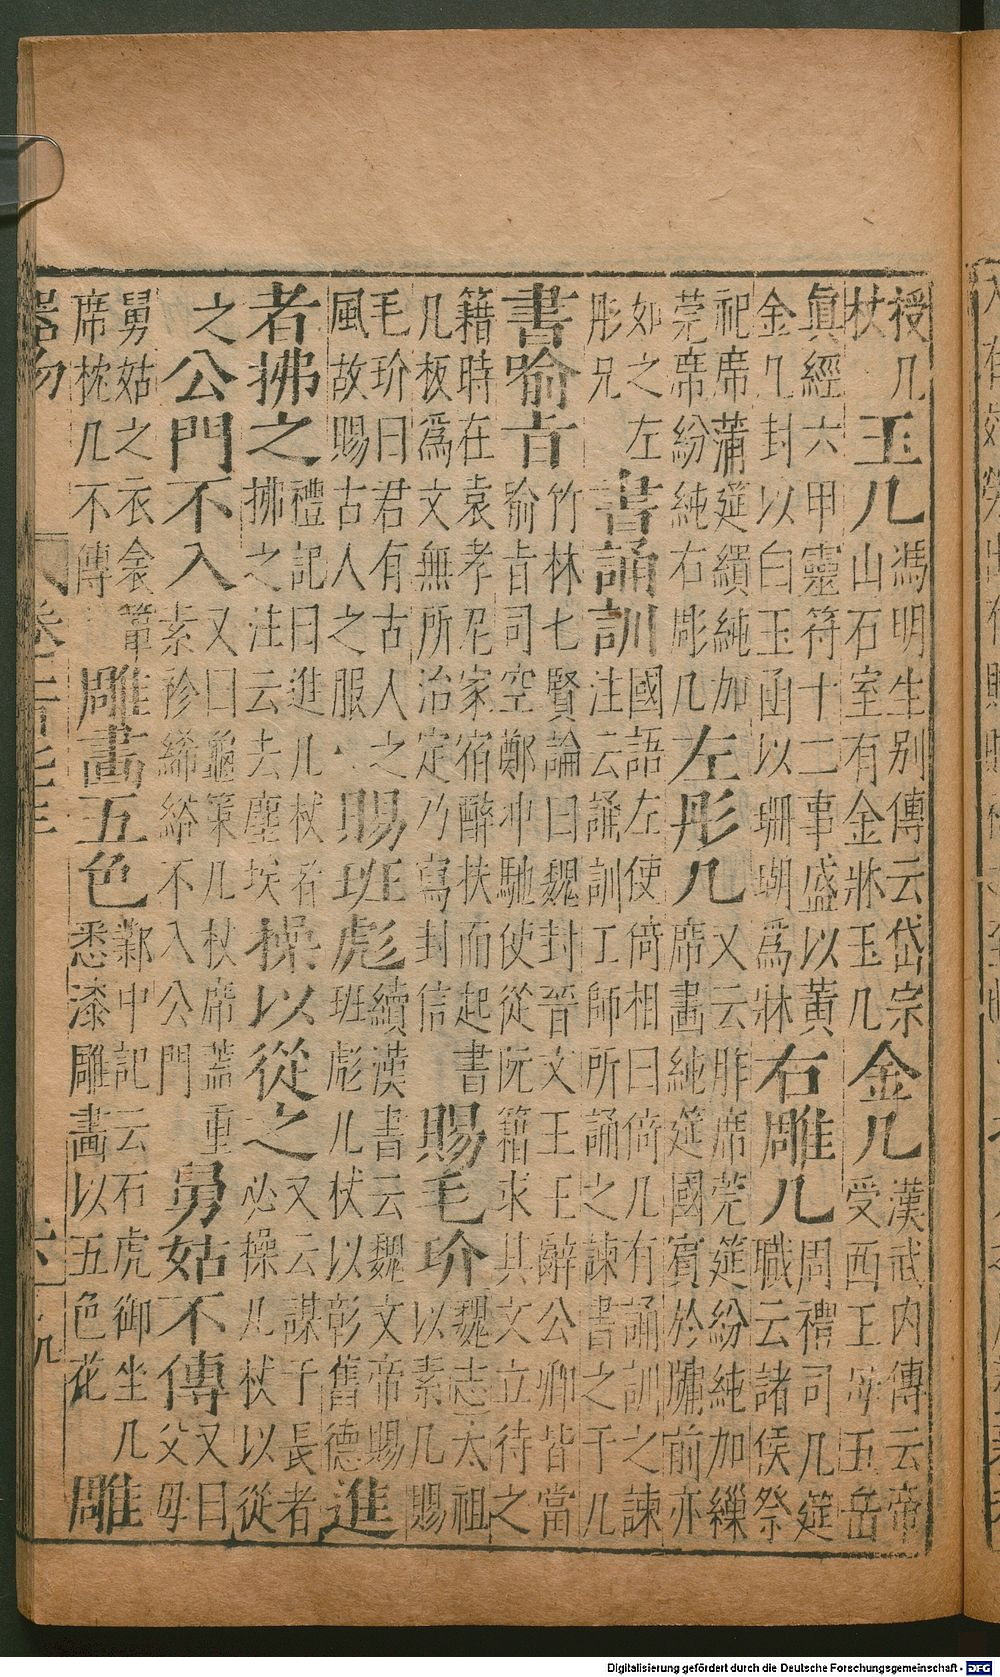 授几杖玉几馮明生别傳云岱宗山石室有金牀玉几金几漢武内傳云帝受西王母五岳
眞經六甲靈符十二事盛以黃金几封以白玉函以珊瑚爲牀右雕几周禮司几筵職云諸侯祭
祀席蒲筵繢純加莞席紛純右彫几左彤几又云胙席莞筵紛純加繅席畫純筵國賓於牖前亦
如之左彤兄書誦訓國語左使倚相曰倚几有誦訓之諫注云誦訓工師所誦之諫書之于几
書喻旨竹林七賢論曰魏封晉文王王辭公卿皆當喻旨司空鄭冲馳使從阮籍求其文立待之
籍時在袁孝尼家宿醉扶而起書几板爲文無所治定乃寫封信賜毛玠魏志太祖以素几賜
毛玠曰君有古人之風故賜古人之服賜班彪續漢書云魏文帝賜班彪几杖以彰舊德進
者拂之禮記曰進几杖者拂之注云去塵埃操以從之又云謀于長者必操几杖以從
之公門不入又曰龜筴几杖席蓋重素袗絺綌不入公門舅姑不傳又曰父母
舅姑之衣衾簟席枕几不傳雕畵五色鄴中記云石虎御坐几悉漆雕畵以五色花雕
器物
Digitalisierung gefördert durch die Deutsche Forschungsgemeinschaft - DFG